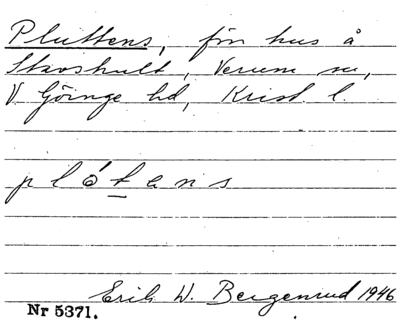 Pluttens, förr hus å
Stavshult, Verum sn,
V Göinge hd, Krist. l.
plótans
Erik W. Bergenrud 1946
Nr 5371.